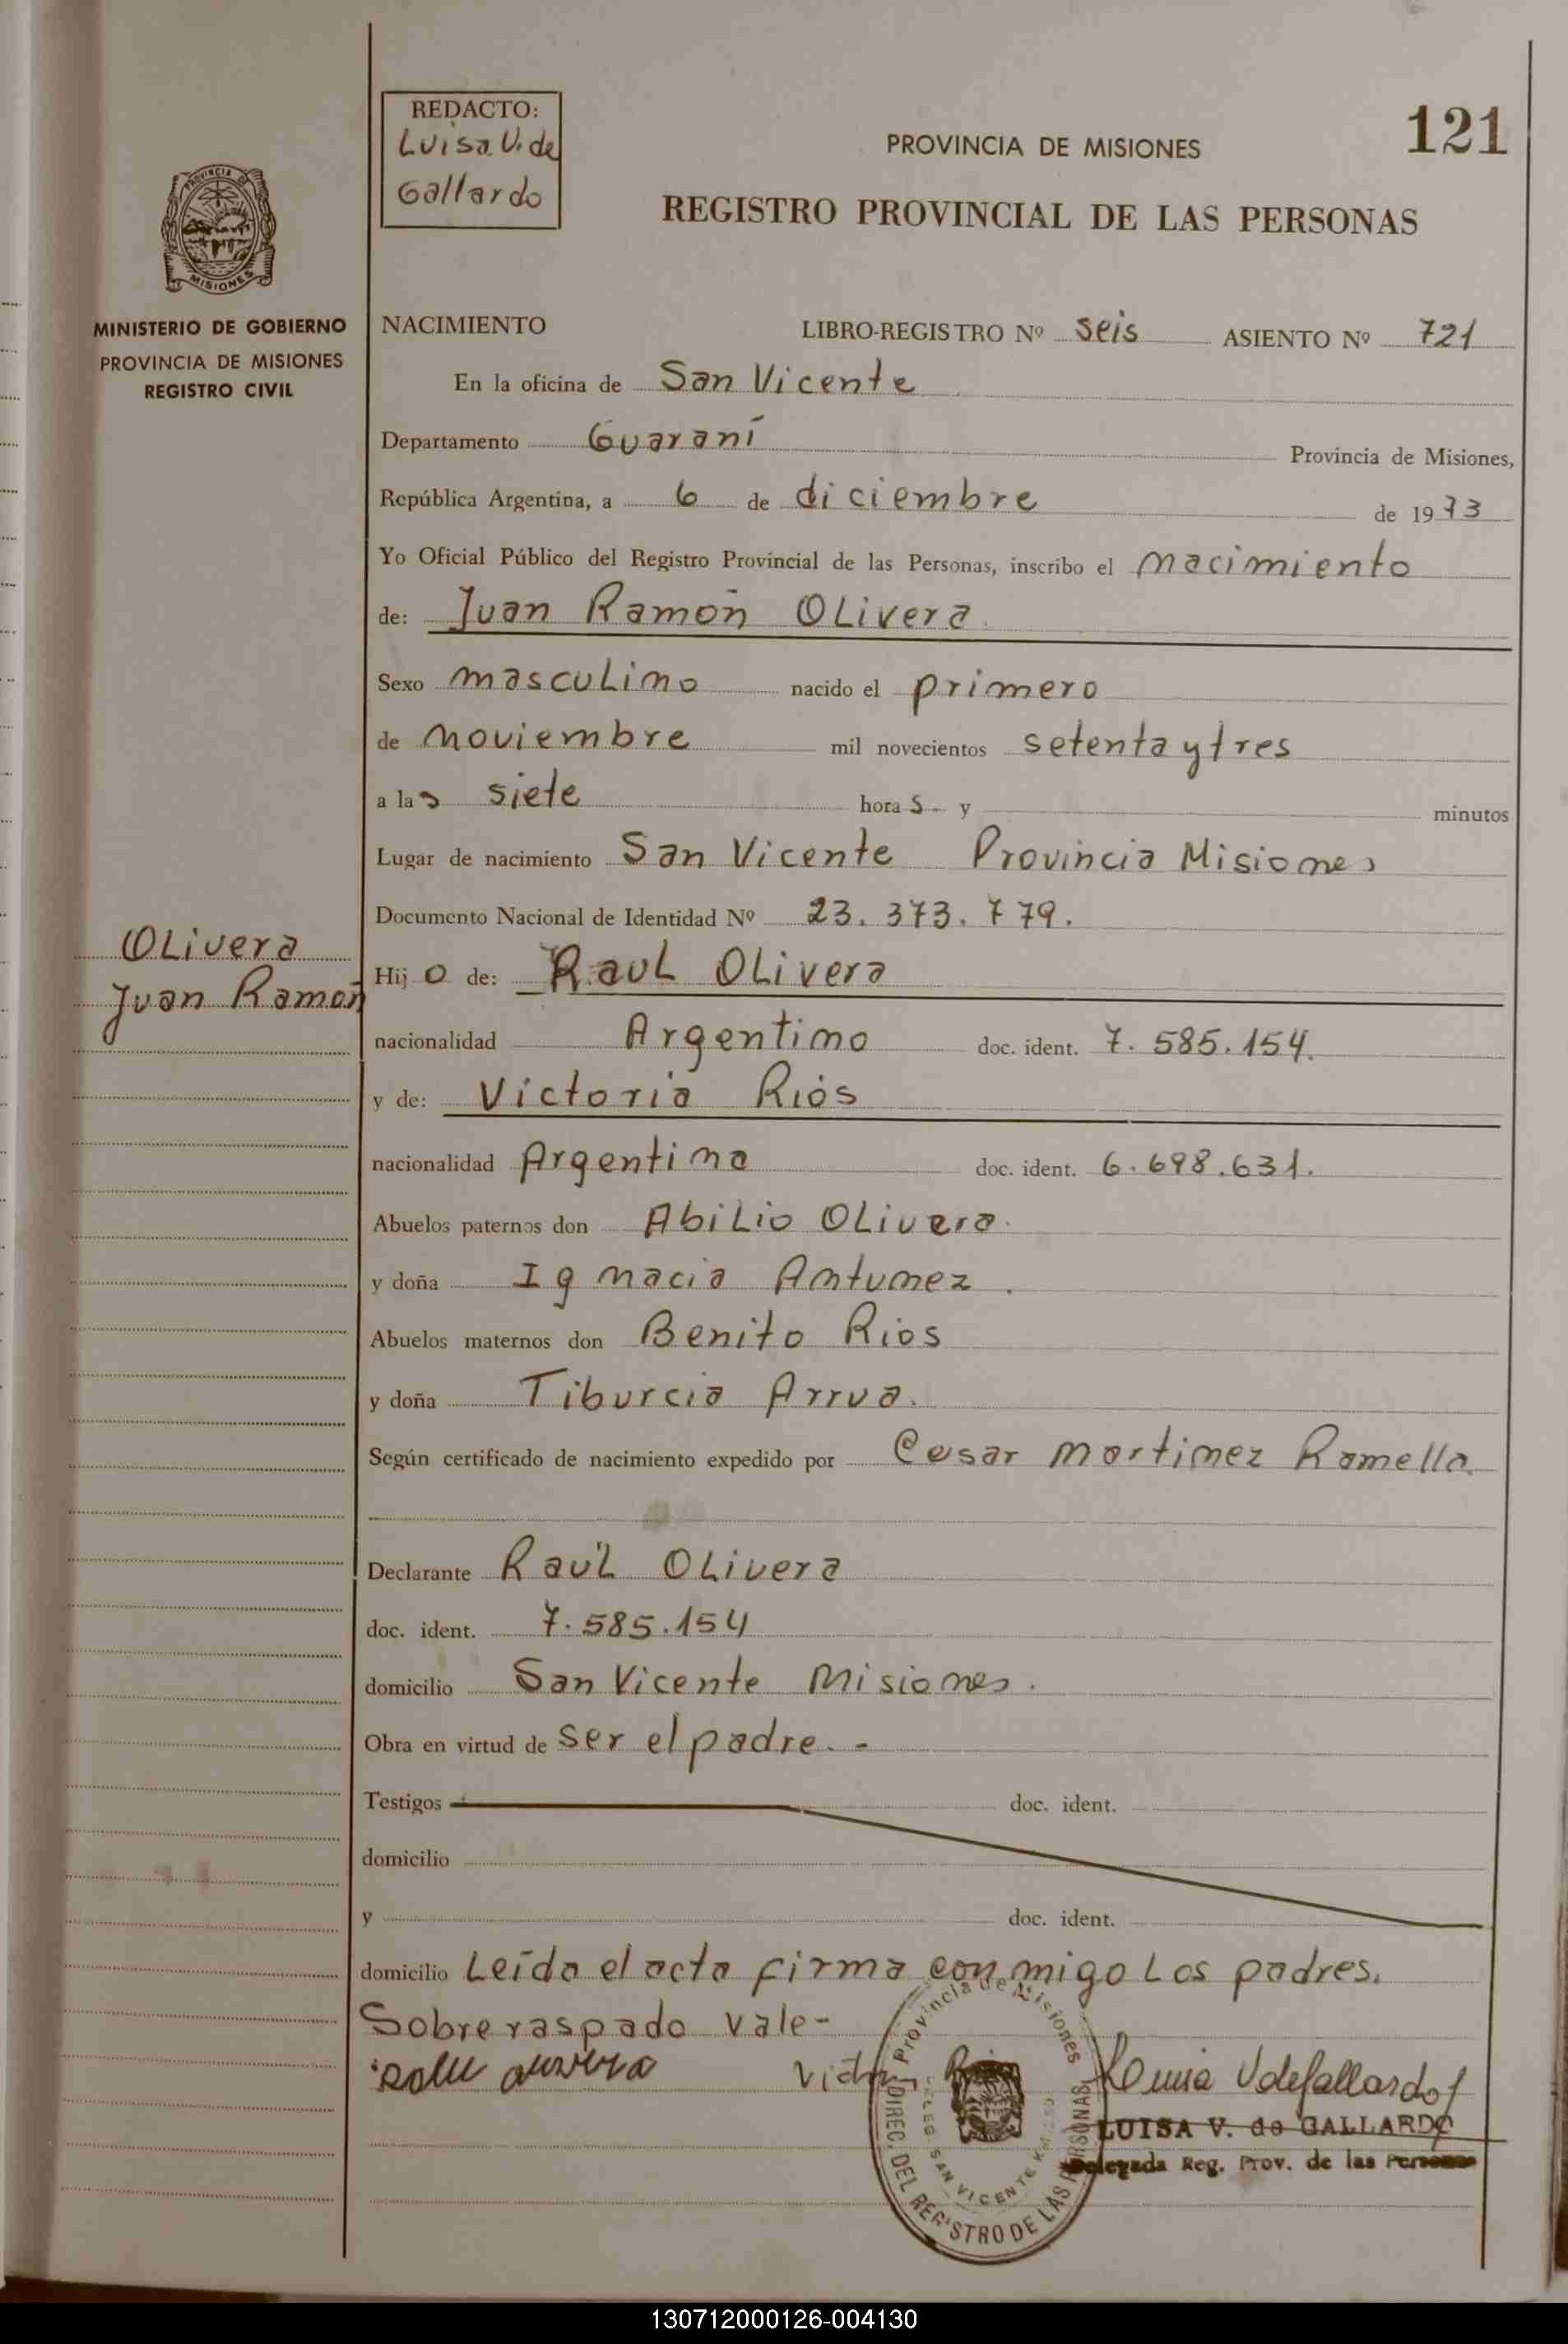 REDACTO:
Luisa V. de
Gallardo
121
PROVINCIA DE MISIONES
REGISTRO PROVINCIAL DE LAS PERSONAS
PROVINCIA DE
MISIONES
MINISTERIO DE GOBIERNO
PROVINCIA DE MISIONES
REGISTRO CIVIL
NACIMIENTO LIBRO-REGISTRO Nº seis ASIENTO Nº 721
En la oficina de San Vicente
Departamento Guaraní Provincia de Misiones,
República Argentina, a 6 de diciembre de 1973
Yo Oficial Público del Registro Provincial de las Personas, inscribo el nacimiento
de: Juan Ramón Olivera
Sexo masculino nacido el primero
de noviembre mil novecientos setenta y tres
a las siete horas y minutos
Lugar de nacimiento San Vicente Provincia Misiones
Documento Nacional de Identidad Nº 23.373.779.
Olivera
Juan Ramón
Hijo de: Raul Olivera
nacionalidad Argentino doc. ident. 7.585.154.
y de: Victoria Ríos
nacionalidad Argentina doc. ident. 6.698.631.
Abuelos paternos don Abilio Olivera.
y doña Ignacia Antunez.
Abuelos maternos don Benito Rios
y doña Tiburcia Arrua.
Según certificado de nacimiento expedido por Cesar Martinez Ramella.
Declarante Raúl Olivera
doc. ident. 7.585.154
domicilio San Vicente Misiones.
Obra en virtud de ser el padre.-
Testigos doc. ident.
domicilio
y doc. ident.
domicilio Leída el acta firma conmigo los padres.
Sobre raspado vale-
Luisa V de Gallardo
LUISA V. de GALLARDO
Delegada Reg. Prov. de las Personas
Provincia de Misiones
DIREC. DEL REGISTRO DE LAS PERSONAS
SAN VICENTE
130712000126-004130